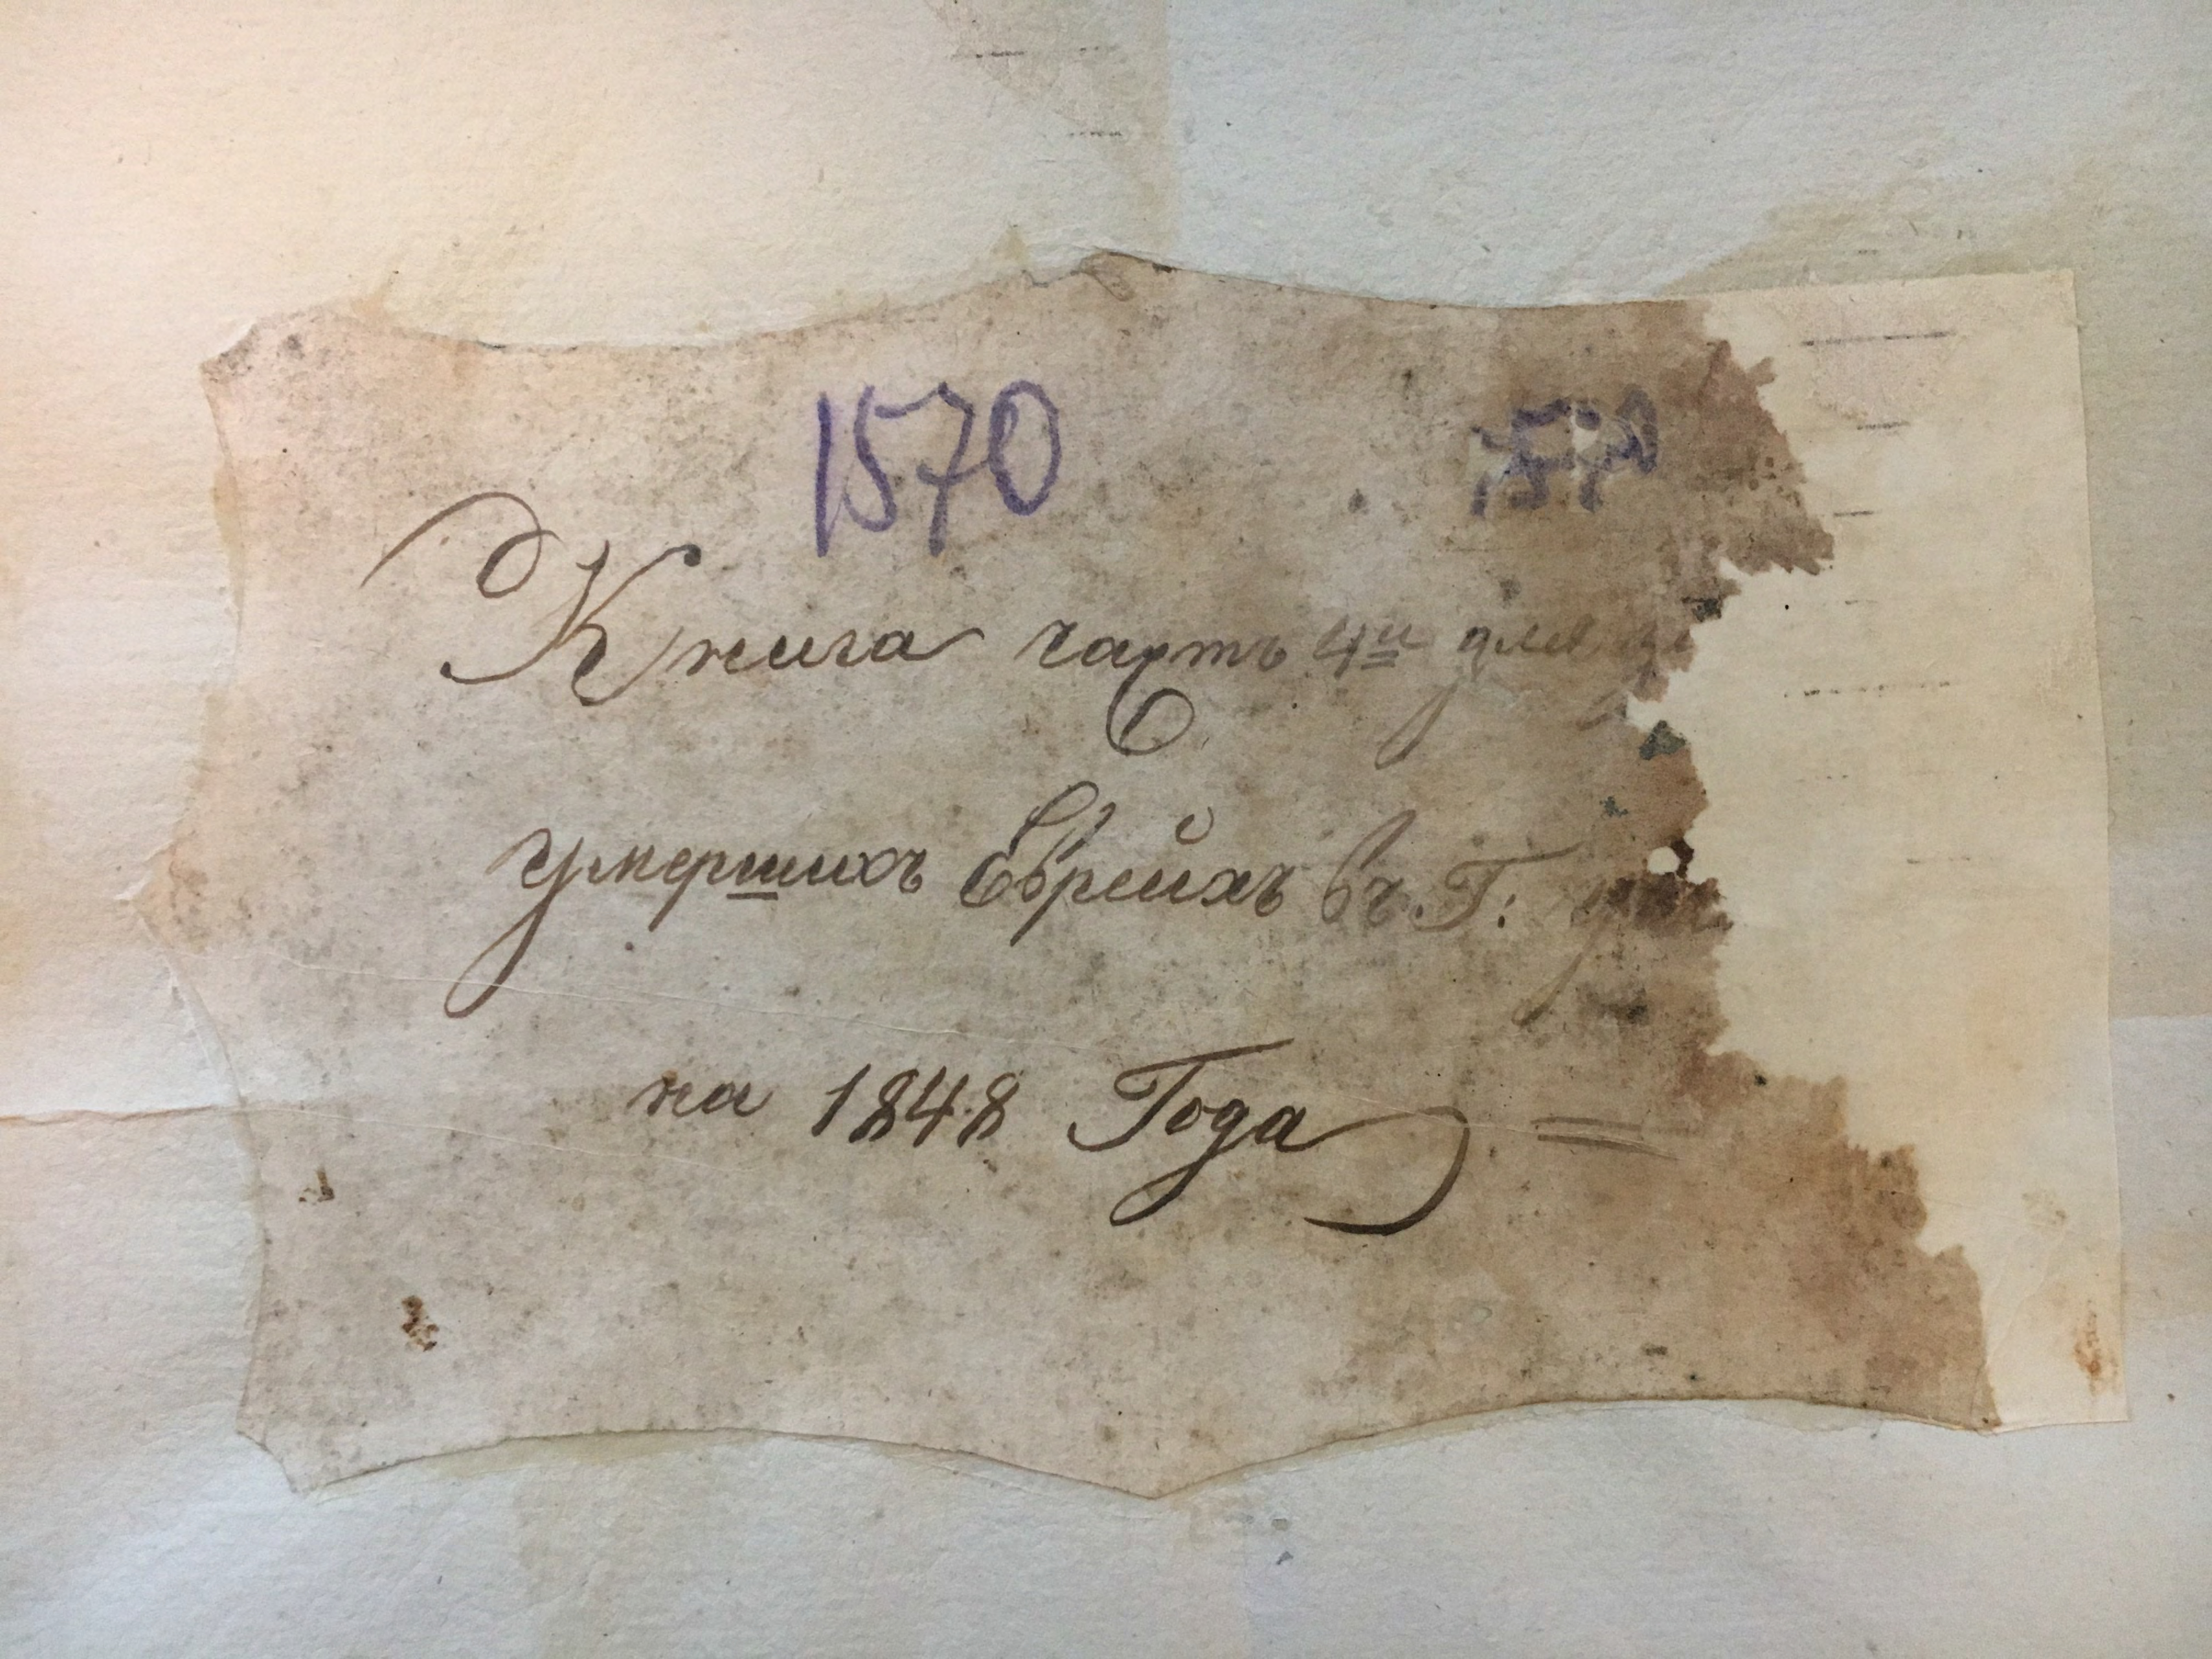 1570 1570
Книга часть 4ая для
умершихъ Еврейхъ въ Г:
на 1848 Года